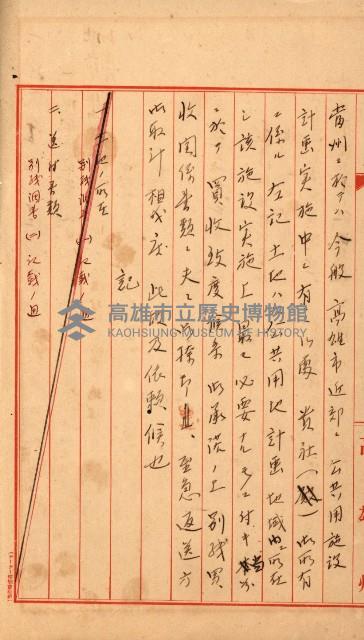 當州ニ於テハ今般高雄市近郊ニ公共用施設
計画実施中ニ有之候處貴社（ ）御所有
ニ係ル左記土地ハ公共用地計画地域内ニ所在
シ該施設実施上最モ必要ナルモノニ付キ當方
ニ於テ買收致度候条御承諾ノ上別紙買
收関係書類ニ夫々御捺印ノ上、至急返送方
御取計相成度此段及依頼候也
記
一、土地ノ所在
別紙調書（一）記載ノ通
二、送付書類
別紙調書（二）記載ノ通
高雄市立歷史博物館
KAOHSIUNG MUSEUM OF HISTORY
高雄州